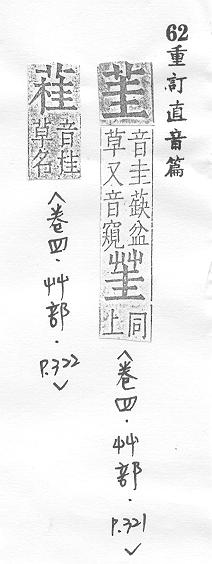 62 重訂直音篇
茥
音圭蒛盆
草又音窺
茥
同
上
<卷四.艸部.P.321>
蓕
音桂
草名
<卷四.艸部.P.322>